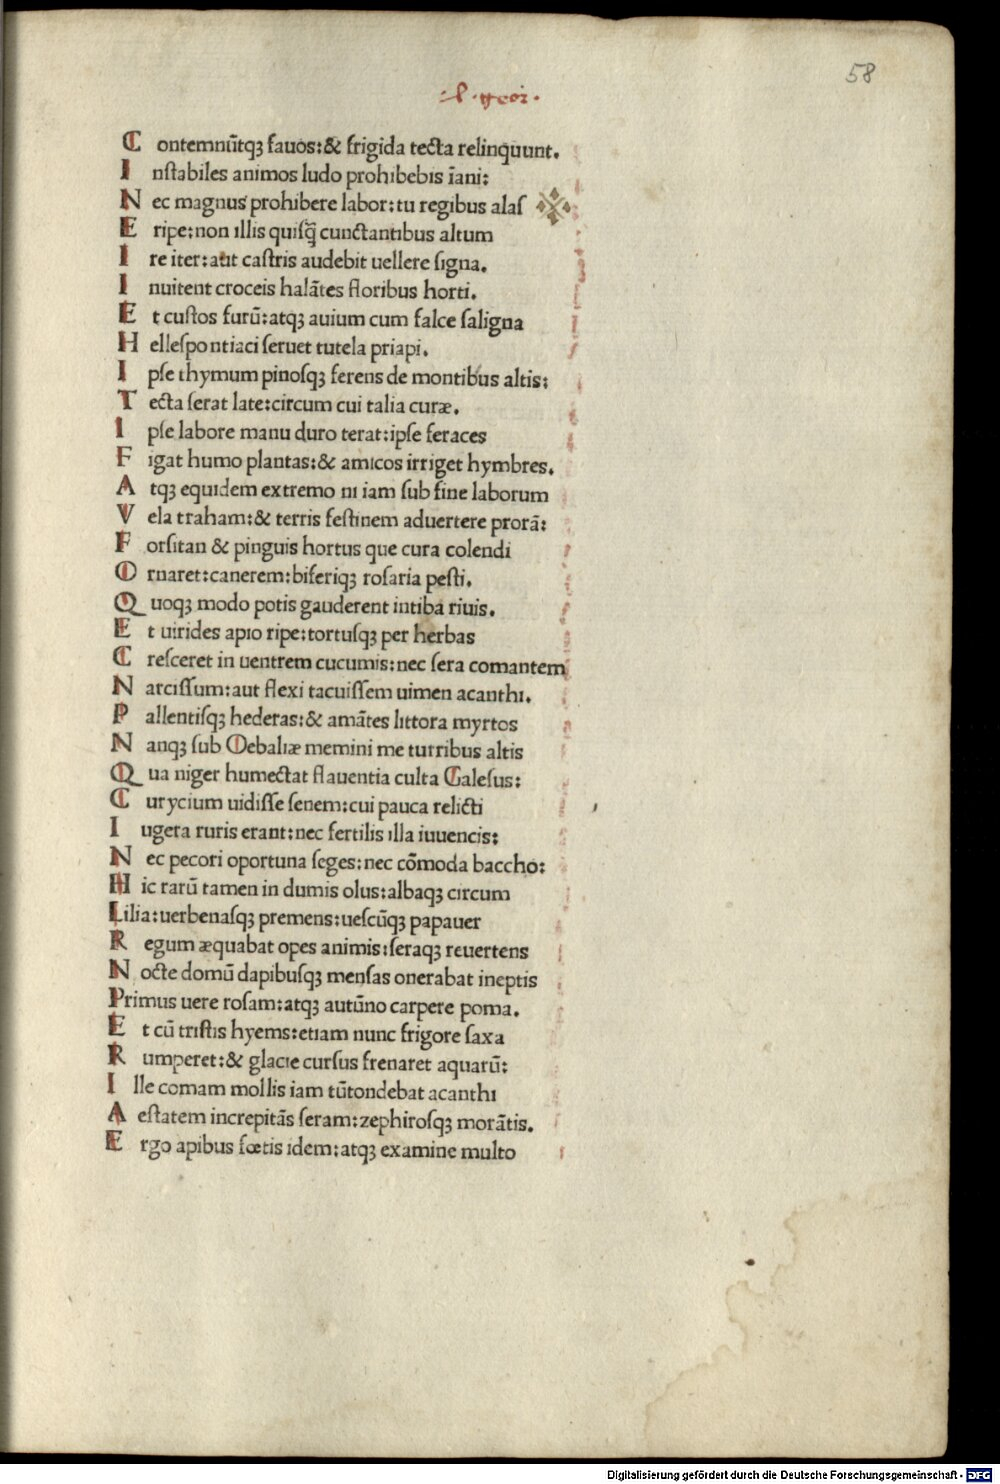 58
C ontemnūtqꝫ fauos:& frigida tecta relinquunt.
I nſtabiles animos ludo prohibebis īani:
N ec magnus prohibere labor:tu regibus alaſ
E ripe:non illis quiſq̄ cunctantibus altum
I re iter:aut caſtris audebit uellere ſigna.
I nuitent croceis halātes floribus horti.
E t cuſtos furū:atqꝫ auium cum falce ſaligna
H elleſpontiaci ſeruet tutela priapi.
I pſe thymum pinoſqꝫ ferens de montibus altis:
T ecta ſerat late:circum cui talia curæ.
I pſe labore manu duro terat:ipſe feraces
F igat humo plantas:& amicos irriget hymbres.
A tqꝫ equidem extremo ni iam ſub fine laborum
V ela traham:& terris feſtinem aduertere prorā:
F orſitan & pinguis hortus que cura colendi
O rnaret:canerem:biferiqꝫ roſaria peſti.
Q uoqꝫ modo potis gauderent intiba riuis.
E t uirides apio ripe:tortuſqꝫ per herbas
C reſceret in uentrem cucumis:nec ſera comantem
N arciſſum:aut flexi tacuiſſem uimen acanthi.
P allentiſqꝫ hederas:& amātes littora myrtos
N anqꝫ ſub Oebaliæ memini me turribus altis
Q ua niger humectat flauentia culta Galeſus:
C urycium uidiſſe ſenem:cui pauca relicti
I ugera ruris erant:nec fertilis illa iuuencis:
N ec pecori oportuna ſeges:nec cōmoda baccho:
H ic rarū tamen in dumis olus:albaqꝫ circum
Lilia:uerbenaſqꝫ premens:ueſcūqꝫ papauer
R egum æquabat opes animis:ſeraqꝫ reuertens
N octe domū dapibuſqꝫ menſas onerabat ineptis
Primus uere roſam:atqꝫ autūno carpere poma.
E t cū triſtis hyems:etiam nunc frigore ſaxa
R umperet:& glacie curſus frenaret aquarū:
I lle comam mollis iam tūtondebat acanthi
A eſtatem increpitās ſeram:zephiroſqꝫ morātis.
E rgo apibus fœtis idem:atqꝫ examine multo
Digitalisierung gefördert durch die Deutsche Forschungsgemeinschaft - DFG